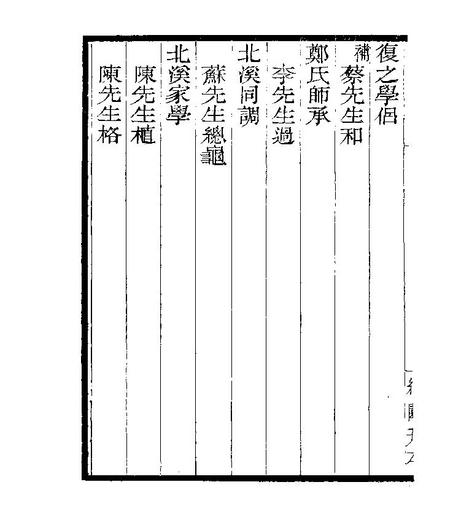 復之學侶
補蔡先生和
鄭氏師承
李先生過
北溪同調
蘇先生總龜
北溪家學
陳先生植
陳先生格